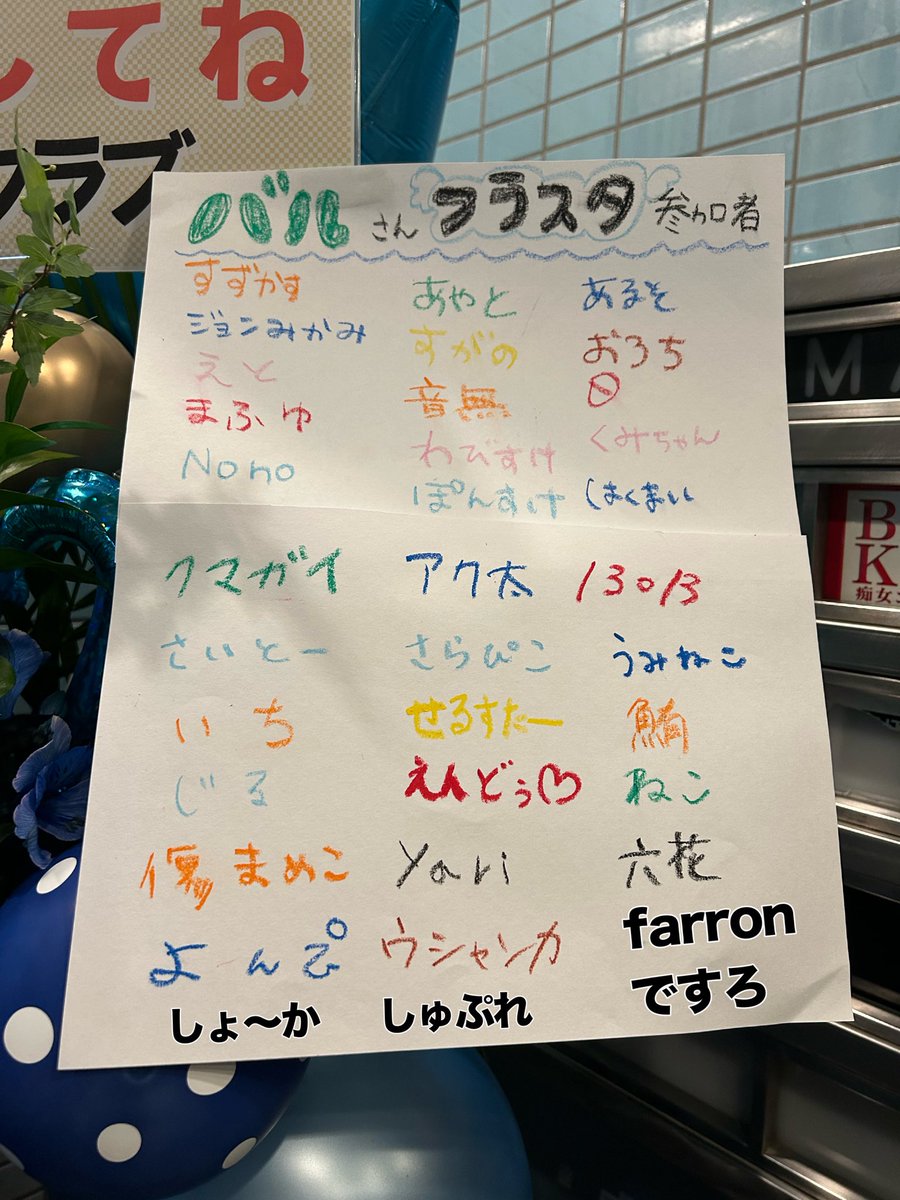 してね
クラブ
バルさん フラスタ 参加者
すずかす
ジョンみかみ
えと
まふゆ
Nono
あやと
すがの
音無
わびすけ
ぽんすけ
あるそ
おろち
くみちゃん
はくまい
クマガイ アク太 13013
さいとー さらぴこ うみねこ
いち せるすたー 鮪
じる えんどぅ♡ ねこ
まめこ Yari 六花
よんぴ ウシャンカ farron
しょ〜か しゅぷれ ですろ
MA
B
K
痴女